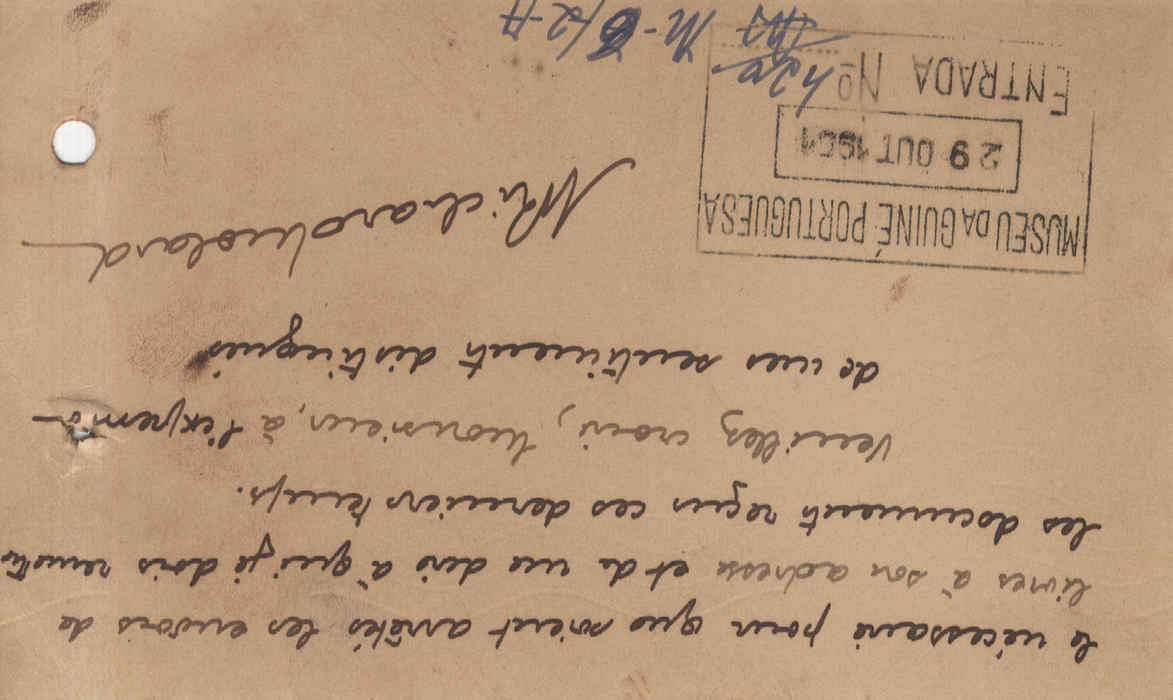 le nécessaire pour que soient arrêtés les envois de
livres à son adresse et de me dire à qui je dois remettre
les document reçus ces derniers temps.
Veuillez croire, Monsieur, à l'expression
de mes sentiments distingués
MUSEU DA GUINÉ PORTUGUESA
29 OUT 1951
ENTRADA Nº
M-6/2-A